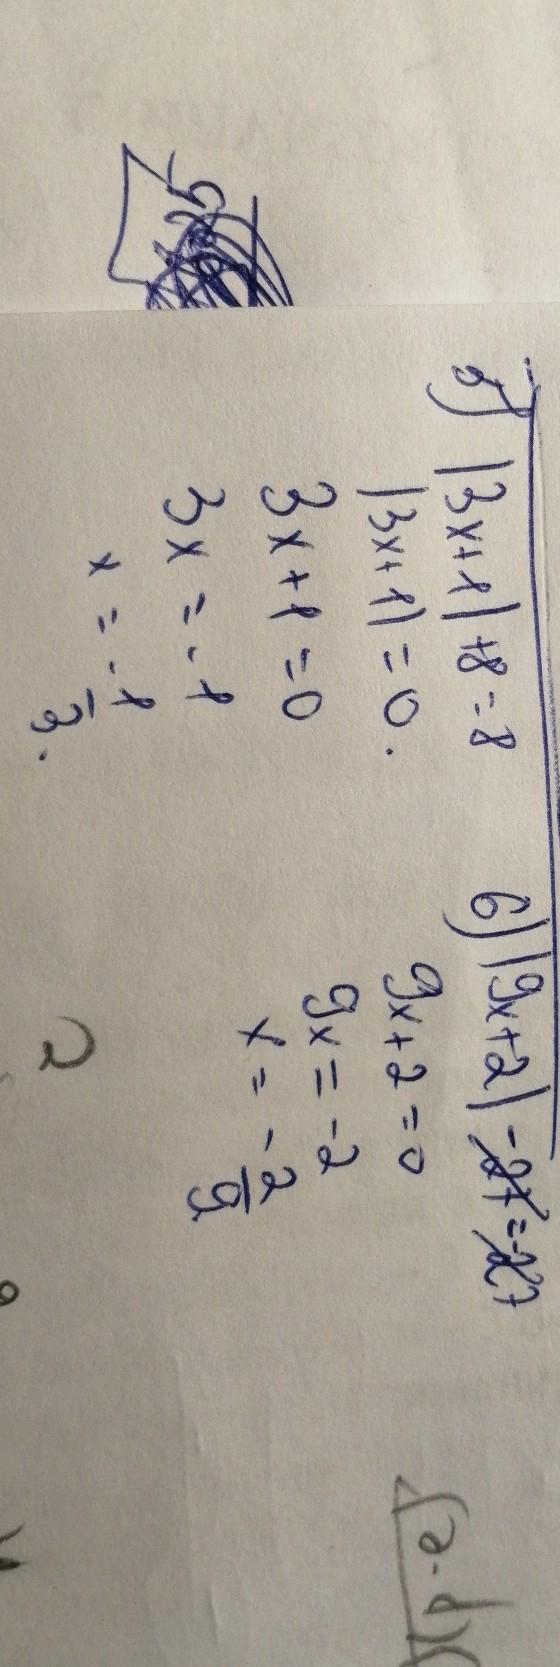 5) |3x+1|+8=8
|3x+1|=0.
3x+1=0
3x=-1
x=-1/3.
6) |9x+2|-27=-27
9x+2=0
9x=-2
x=-2/9
2